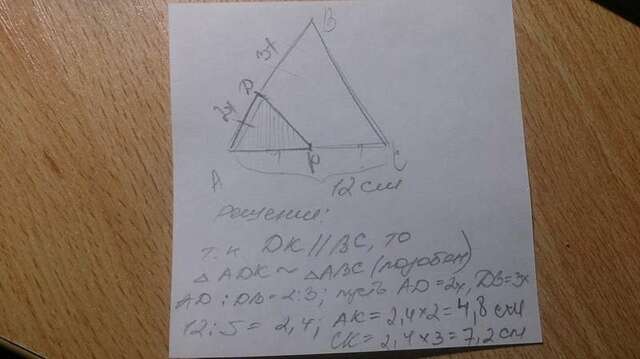 B
3x
D
2x
A
K
C
12 см
решение:
т.к DK//BC, то
△ADK ~ △ABC (подобен)
AD:DB=2:3; пусть AD=2x, DB=3x
12:5=2,4; AK=2,4×2=4,8 см
CK=2,4×3=7,2 см